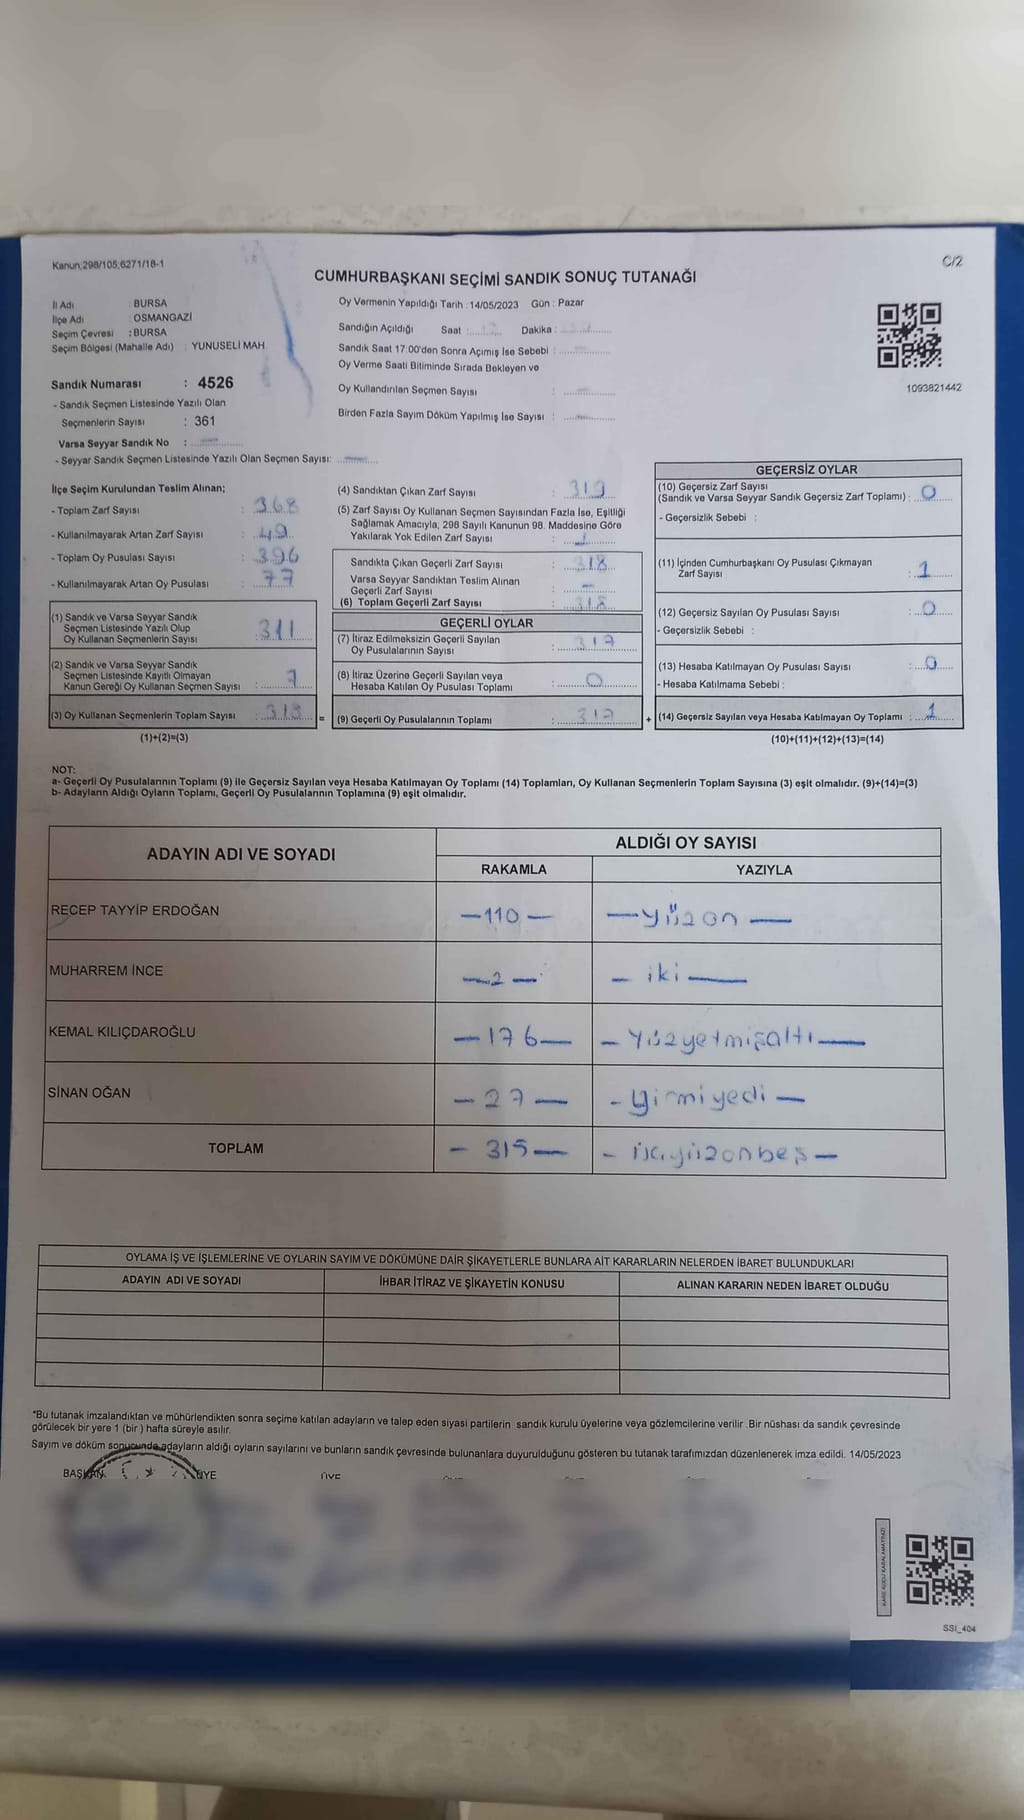 Kanun;298/105,6271/18-1
C/2
CUMHURBAŞKANI SEÇİMİ SANDIK SONUÇ TUTANAĞI
İl Adı : BURSA
İlçe Adı : OSMANGAZİ
Seçim Çevresi : BURSA
Seçim Bölgesi (Mahalle Adı) : YUNUSELİ MAH.
Oy Vermenin Yapıldığı Tarih :14/05/2023 Gün : Pazar
Sandığın Açıldığı Saat : Dakika :
Sandık Saat 17:00'den Sonra Açımış İse Sebebi :
Oy Verme Saati Bitiminde Sırada Bekleyen ve
Oy Kullandırılan Seçmen Sayısı :
Birden Fazla Sayım Döküm Yapılmış İse Sayısı :
1093821442
Sandık Numarası : 4526
- Sandık Seçmen Listesinde Yazılı Olan
Seçmenlerin Sayısı : 361
Varsa Seyyar Sandık No :
- Seyyar Sandık Seçmen Listesinde Yazılı Olan Seçmen Sayısı:
İlçe Seçim Kurulundan Teslim Alınan;
- Toplam Zarf Sayısı : 368
- Kullanılmayarak Artan Zarf Sayısı : 49
- Toplam Oy Pusulası Sayısı : 396
- Kullanılmayarak Artan Oy Pusulası : 77
(1) Sandık ve Varsa Seyyar Sandık
Seçmen Listesinde Yazılı Olup
Oy Kullanan Seçmenlerin Sayısı : 311
(2) Sandık ve Varsa Seyyar Sandık
Seçmen Listesinde Kayıtlı Olmayan
Kanun Gereği Oy Kullanan Seçmen Sayısı : 7
(3) Oy Kullanan Seçmenlerin Toplam Sayısı : 318 =
(1)+(2)=(3)
(4) Sandıktan Çıkan Zarf Sayısı : 319
(5) Zarf Sayısı Oy Kullanan Seçmen Sayısından Fazla İse, Eşitliği
Sağlamak Amacıyla; 298 Sayılı Kanunun 98. Maddesine Göre
Yakılarak Yok Edilen Zarf Sayısı : 1
Sandıkta Çıkan Geçerli Zarf Sayısı : 318
Varsa Seyyar Sandıktan Teslim Alınan
Geçerli Zarf Sayısı : -
(6) Toplam Geçerli Zarf Sayısı : 318
GEÇERLİ OYLAR
(7) İtiraz Edilmeksizin Geçerli Sayılan
Oy Pusulalarının Sayısı : 317
(8) İtiraz Üzerine Geçerli Sayılan veya
Hesaba Katılan Oy Pusulası Toplamı : 0
(9) Geçerli Oy Pusulalarının Toplamı : 317 +
GEÇERSİZ OYLAR
(10) Geçersiz Zarf Sayısı
(Sandık ve Varsa Seyyar Sandık Geçersiz Zarf Toplamı) : 0
- Geçersizlik Sebebi :
(11) İçinden Cumhurbaşkanı Oy Pusulası Çıkmayan
Zarf Sayısı : 1
(12) Geçersiz Sayılan Oy Pusulası Sayısı : 0
- Geçersizlik Sebebi :
(13) Hesaba Katılmayan Oy Pusulası Sayısı : 0
- Hesaba Katılmama Sebebi :
(14) Geçersiz Sayılan veya Hesaba Katılmayan Oy Toplamı : 1
(10)+(11)+(12)+(13)=(14)
NOT:
a- Geçerli Oy Pusulalarının Toplamı (9) ile Geçersiz Sayılan veya Hesaba Katılmayan Oy Toplamı (14) Toplamları, Oy Kullanan Seçmenlerin Toplam Sayısına (3) eşit olmalıdır. (9)+(14)=(3)
b- Adayların Aldığı Oyların Toplamı, Geçerli Oy Pusulalarının Toplamına (9) eşit olmalıdır.
ADAYIN ADI VE SOYADI
ALDIĞI OY SAYISI
RAKAMLA YAZIYLA
RECEP TAYYİP ERDOĞAN -110- -yüzon-
MUHARREM İNCE -2- -iki-
KEMAL KILIÇDAROĞLU -176- -Yüzyetmişaltı-
SİNAN OĞAN -27- -yirmiyedi-
TOPLAM -315- -üçyüzonbeş-
OYLAMA İŞ VE İŞLEMLERİNE VE OYLARIN SAYIM VE DÖKÜMÜNE DAİR ŞİKAYETLERLE BUNLARA AİT KARARLARIN NELERDEN İBARET BULUNDUKLARI
ADAYIN ADI VE SOYADI İHBAR İTİRAZ VE ŞİKAYETİN KONUSU ALINAN KARARIN NEDEN İBARET OLDUĞU
*Bu tutanak imzalandıktan ve mühürlendikten sonra seçime katılan adayların ve talep eden siyasi partilerin sandık kurulu üyelerine veya gözlemcilerine verilir .Bir nüshası da sandık çevresinde
görülecek bir yere 1 (bir ) hafta süreyle asılır.
Sayım ve döküm sonucunda adayların aldığı oyların sayılarını ve bunların sandık çevresinde bulunanlara duyurulduğunu gösteren bu tutanak tarafımızdan düzenlenerek imza edildi. 14/05/2023
BAŞKAN ÜYE ÜYE
SSI_404